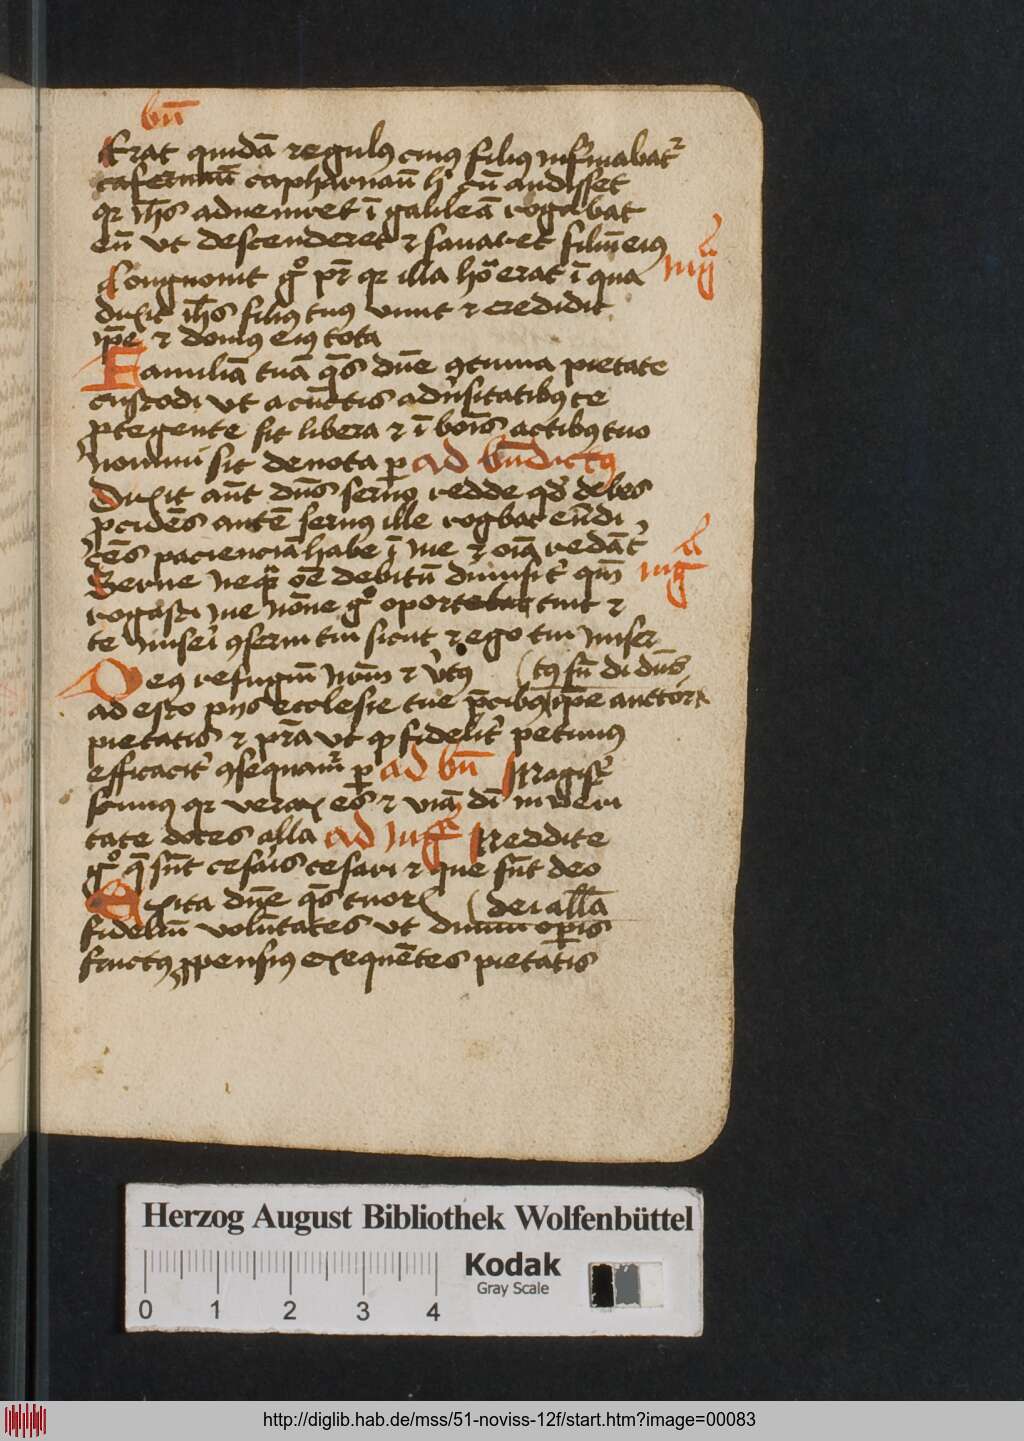 bn̄
Erat quidā regulꝰ cuiꝰ filiꝰ infirmabat᷑
capharnaū h' cū audisset
qꝛ ih̄s adueniret ī galileā rogabat
eū vt descenderet ⁊ sanaret filiū eiꝰ
Congnouit gͦ pr̄ qꝛ illa hͦra erat ī qua
dixit ih̄s filiꝰ tuꝰ viuit ⁊ credidit
ip̄e ⁊ domꝰ eiꝰ tota
Familiā tuā qs̄ dn̄e ꝯtinua pietate
custodi vt a cūctis adu'sitatibꝰ te
ꝓtegente sit libera ⁊ ī bo̅is actibꝰ tuo
nomini sit deuota ꝑ ad bn̄dictꝰ
Dixit aūt dn̄s seruo redde qd' debes
ꝓcidēs autē seruꝰ ille rogabat eū di
cēs pacienciā habe ī me ⁊ oīa reddā t'
Serue neqͣ oē debitū dimisi t' qm̄
rogasti me nōne gͦ oportebat ⁊
te miseri ꝯserui tui sicut ⁊ ego tui miser
Deꝰ refugiū nr̄m ⁊ v'tꝰ (tꝰ sū di dn̄s
adesto pijs ecclesie tue p̄cibꝰ ip̄e auctor
pietatis ⁊ pr̄a vt qͦ fidelit' petimꝰ
efficacit' ꝯsequam᷑ ꝑ ad bn̄ Magist'
scimꝰ qꝛ verax es ⁊ viā di in veri
tate doces alla ad mgͣ Reddite
gͦ q̄ sūt cesaris cesari ⁊ que sūt deo
Excita dn̄e qs̄ tuoꝝ (dei all̄a
fideliū volūtates vt diuini oꝑis
fructꝰ ꝓpensiꝰ exequētes pietatis
Herzog August Bibliothek Wolfenbüttel
Kodak
Gray Scale
0 1 2 3 4
http://diglib.hab.de/mss/51-noviss-12f/start.htm?image=00083